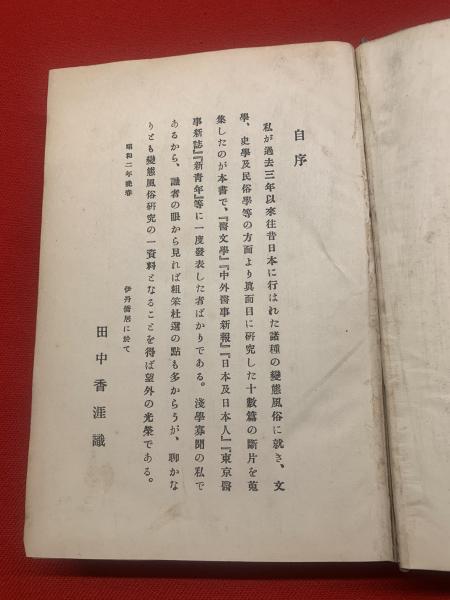 自序
私が過去三年以來往昔日本に行はれた諸種の變態風俗に就き、文
學、史學及民俗學等の方面より眞面目に硏究した十數篇の斷片を蒐
集したのが本書で、『醫文學』『中外醫事新報』『日本及日本人』『東京醫
事新誌』『新靑年』等に一度發表した者ばかりである。淺學寡聞の私で
あるから、識者の眼から見れば粗笨杜選の點も多からうが、聊かな
りとも變態風俗硏究の一資料となることを得ば望外の光榮である。
昭和二年晩春
伊丹僑居に於て
田中香涯識